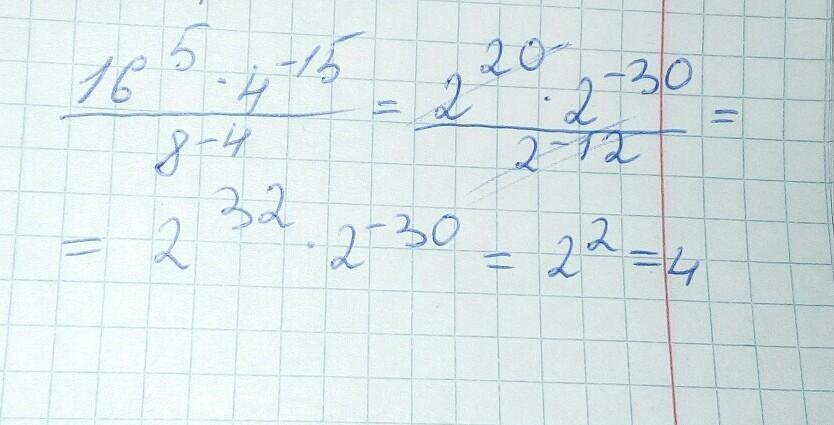 16⁵ · 4⁻¹⁵ / 8⁻⁴ = 2²⁰ · 2⁻³⁰ / 2⁻¹² =
= 2³² · 2⁻³⁰ = 2² = 4